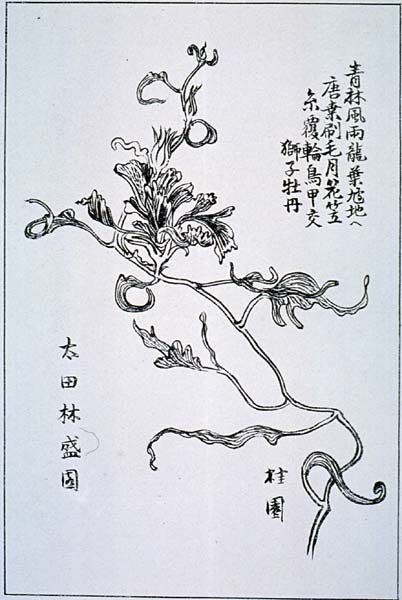 青林風雨龍葉地へ
唐桒刷毛目花笠立
糸覆輪鳥甲交
獅子牡丹
桂園
太田林盛園